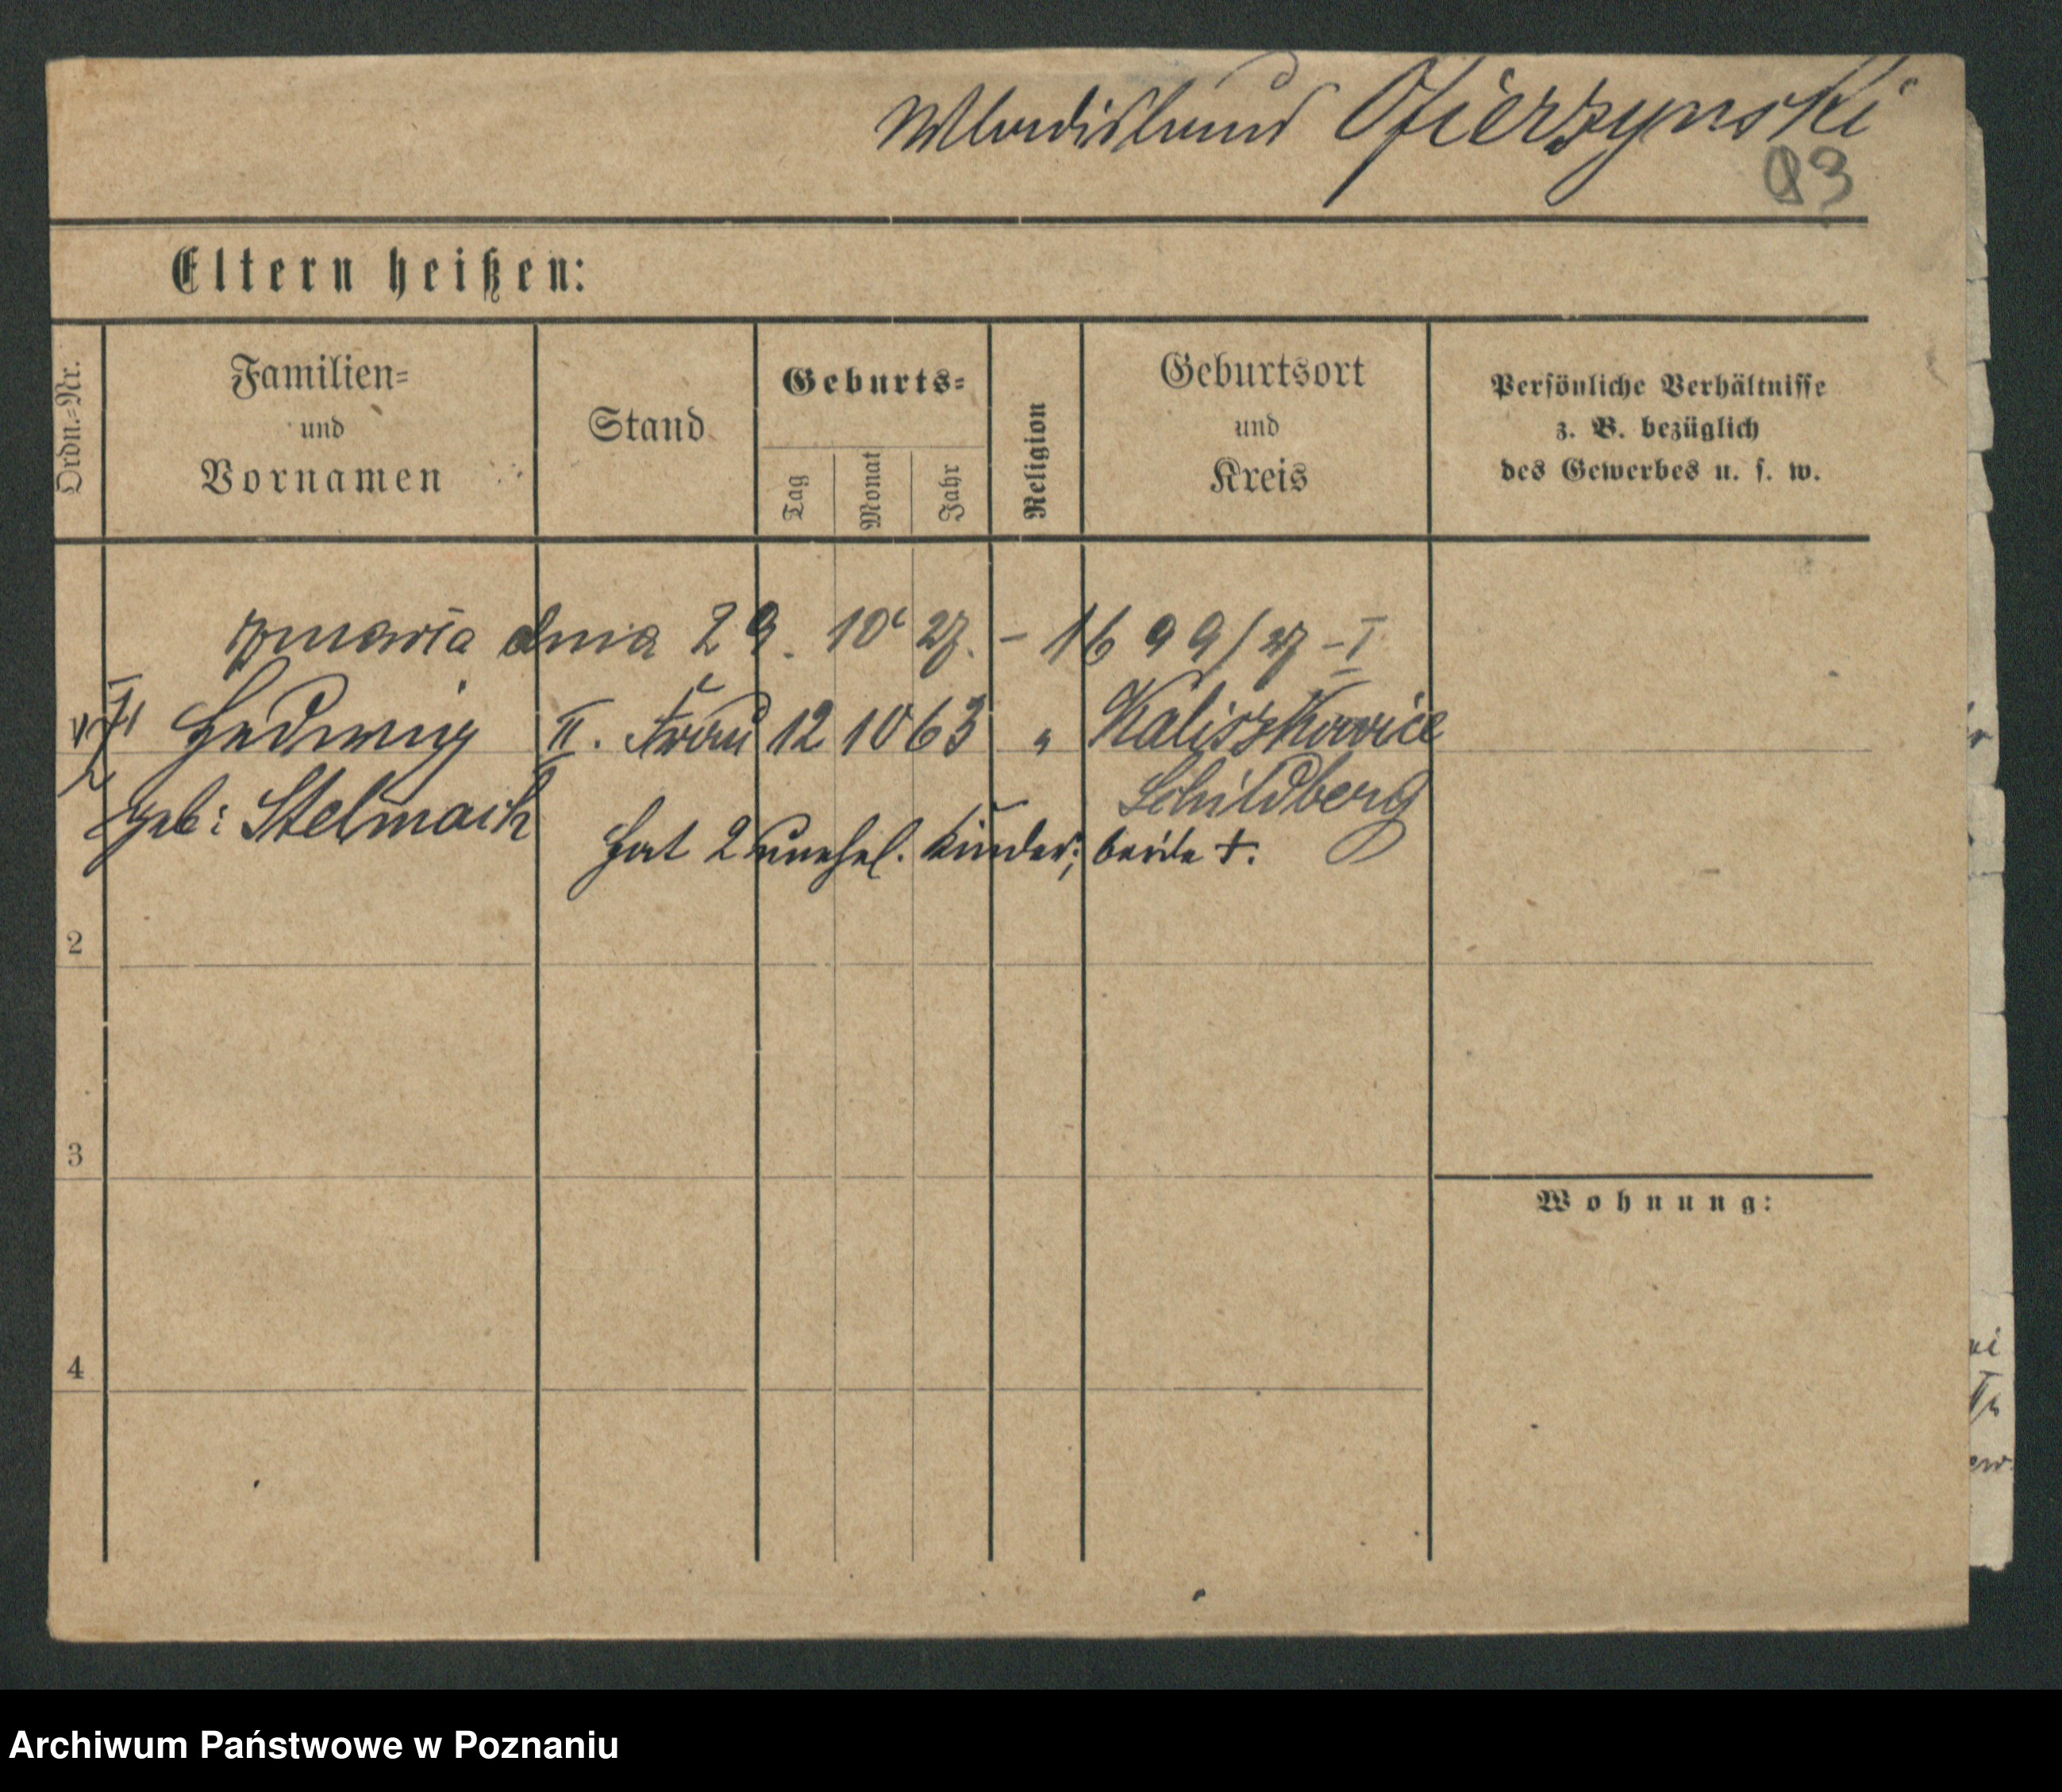 Wladislaus Ofierzynski
93
Eltern heißen:
Ordn.=Nr.
Familien=
und
Vornamen
Stand
Geburts=
Tag
Monat
Jahr
Religion
Geburtsort
und
Kreis
Persönliche Verhältnisse
z. B. bezüglich
des Gewerbes u. s. w.
zmarła dnia 29. 10. 27. – 1699/27 – I
Hedwig II. Frau 12 10 63 " Kaliszkowice
Schildberg
geb: Stelmach
hat 2 unehel. Kinder; beide +.
2
3
Wohnung:
4
Archiwum Państwowe w Poznaniu